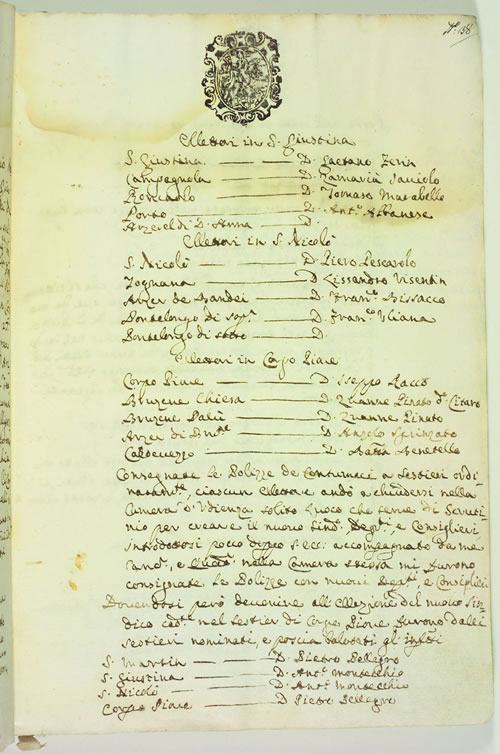 N.° 138
Ellettori in S. Giustina
S. Giustina D. Gaetano Zerin
Campegnola D. Zamaria
Piovecaolo D. Tomaso Marabello
Ponto D. Ant.° Albanese
Arzereldi D. Anna D.
Ellettori in S. Nicolò
S. Nicolò D. Piero Pescarolo
Tognana D. Lissandro Visentin
Arzer de Bandei D. Fran.co Bissacco
Pontelongo di sop.ª D. Fran.co Uliana
Pontelongo di sotto D.
Ellettori in Corpo Piove
Corpo Piove D. Iseppo Racco
Bruzene Chiesa D. Zuanne Pinato
Bruzene Palù D. Zuanne Pinato
Arzer di D. Anzolo Sprinzato
D. Benetello
Consegnate le Polizze de Contumaci a Sestieri ordi-
ciascun Ellettore andò a chiudersi nella
Camera d'Udienza solito luoco che serve di Scruti-
nio per creare il nuovo Sind.°, Degn.i, e Consiglieri
introdottosi pocco doppo S. Ecc. accompagnato da me
nella Camera stessa mi furono
consignate le Polizze con nuovi e Consiglieri
Dovendosi però devenire all'Ellezione del nuovo Sin-
dico nel Sestier di Corpo Piove furono dalli
Sestieri nominati, e poscia balotati gl'
S. Martin D. Pietro Pellegro
S. Giustina D. Ant.° Montecchio
S. Nicolò D. Ant.° Montecchio
Corpo Piove D. Pietro Pellegro